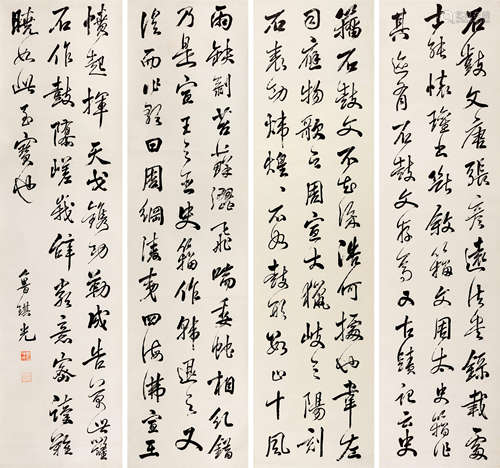 石鼓文唐張彥遠法書錄載處
士張懷瓘書斷敘籀文周太史籀作
其迹有石鼓文存焉又古蹟記云史
籀石鼓文不知徐浩何據也韋左
司應物歌云周宣大獵岐之陽刻
石表功煒煌〻石如鼓形數止十風
雨缺剝苔蘚澀飛喘委蛇相糺錯
乃是宣王之臣史籀作韓退之又
從而作歌曰周綱陵夷四海沸宣王
憤起揮天戈鐫功勒成告萬世鑿
石作鼓隳嵯峨辭嚴意密讀難
曉如此至寶也
魯琪光